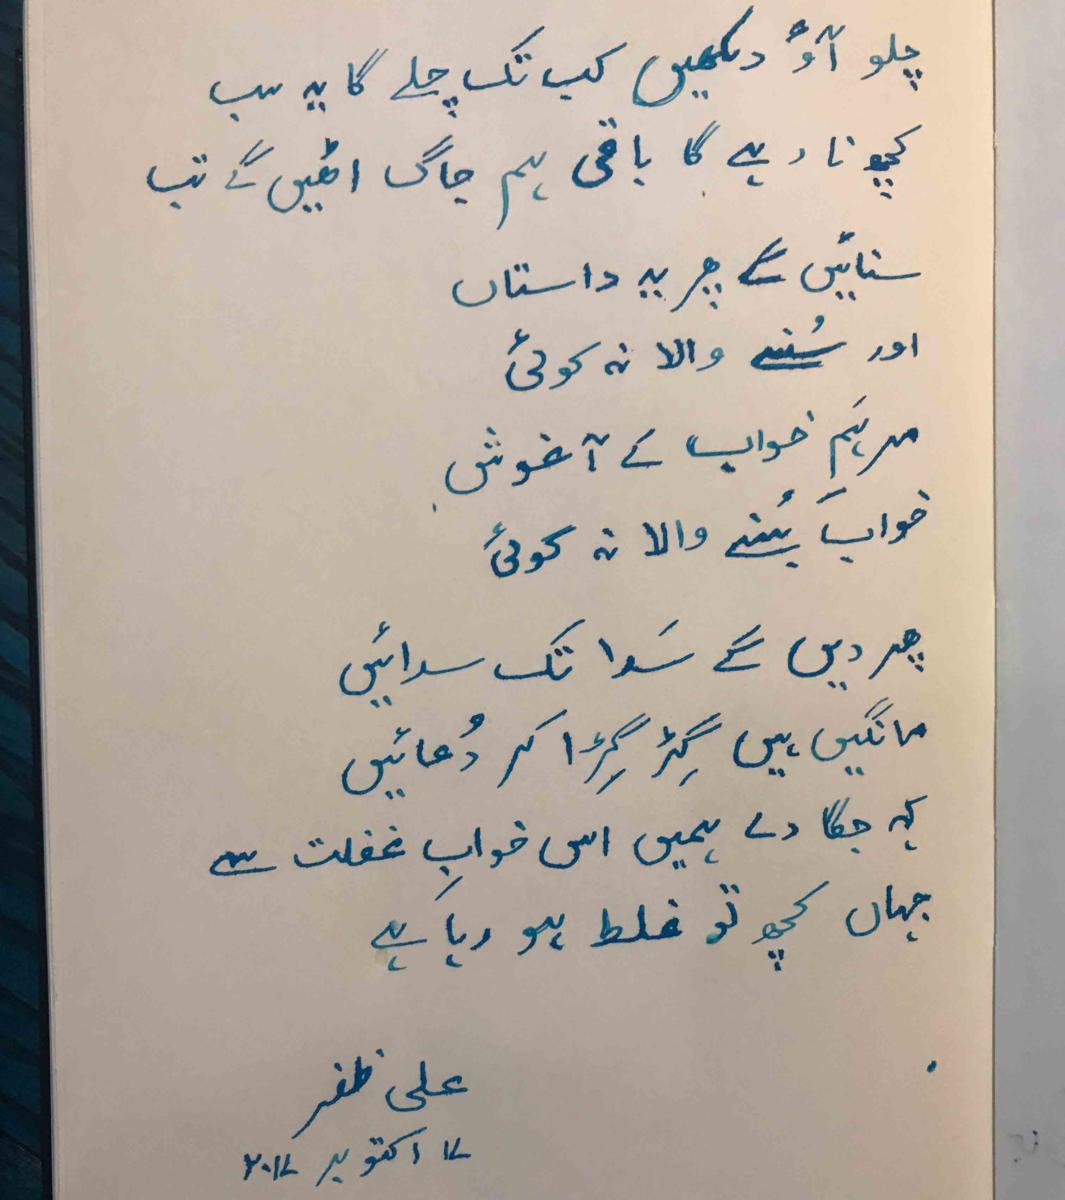 چلو آؤ دیکھیں کب تک چلے گا یہ سب
کچھ نا رہے گا باقی ہم جاگ اٹھیں گے تب
سنائیں گے پھر یہ داستاں
اور سُننے والا نہ کوئی
مرہَم خواب کے آغوش
خواب بُننے والا نہ کوئی
پھر دیں گے سَدا تک سدائیں
مانگیں ہیں گِڑ گِڑا کر دُعائیں
کہ جگا دے ہمیں اس خوابِ غفلت سے
جہاں کچھ تو غلط ہو رہا ہے
علی ظفر
۱۷ اکتوبر ۲۰۱۷